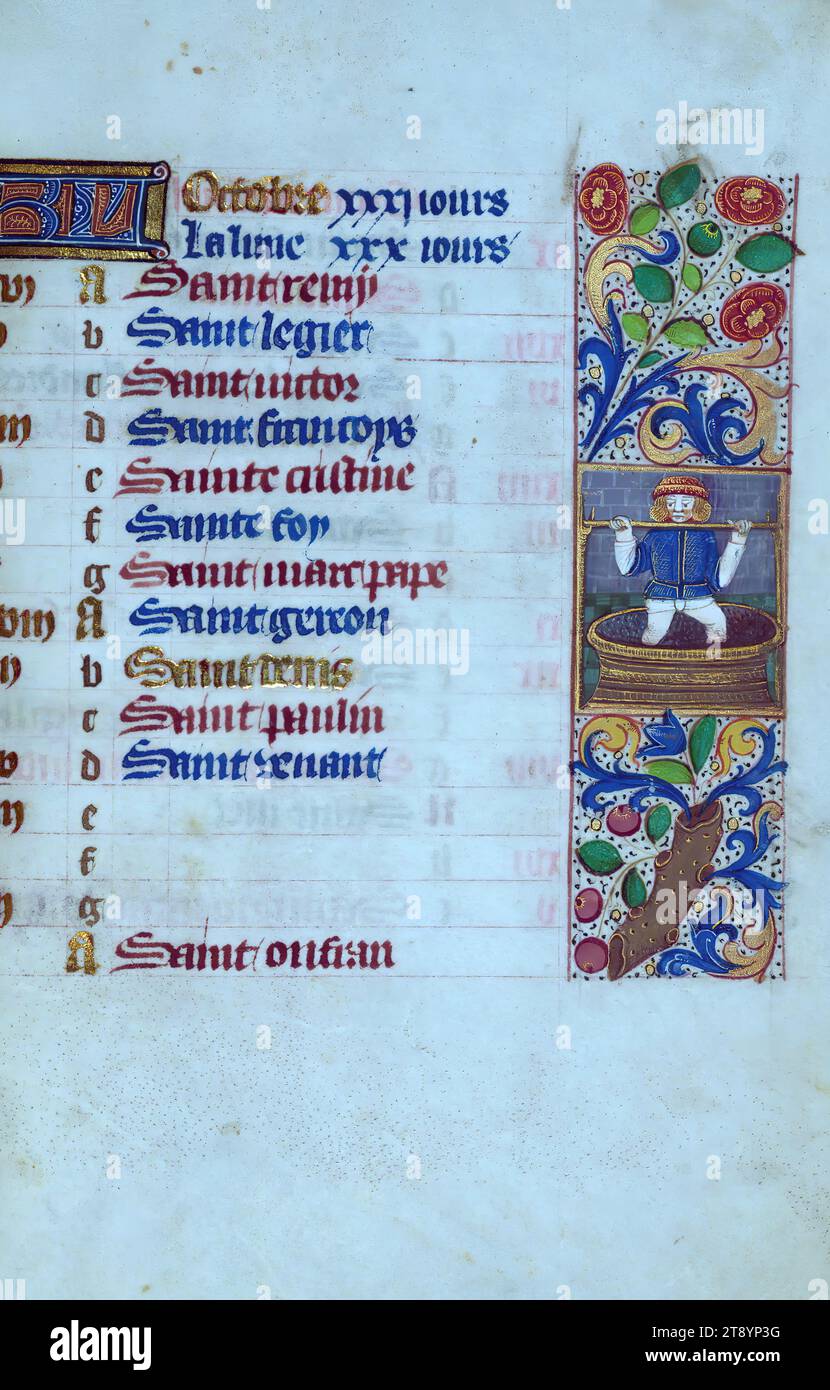 KL Octobre xxxi iours
La lune xxx iours
A Saint remy
b Saint legier
c Saint victor
d Saint francoys
e Sainte cristine
f Sainte foy
g Saint marc pape
A Saint gereon
b Saint denis
c Saint paulin
d Saint venant
e
f
g
A Saint oufran
alamy
Image ID: 2T8YP3G
www.alamy.com